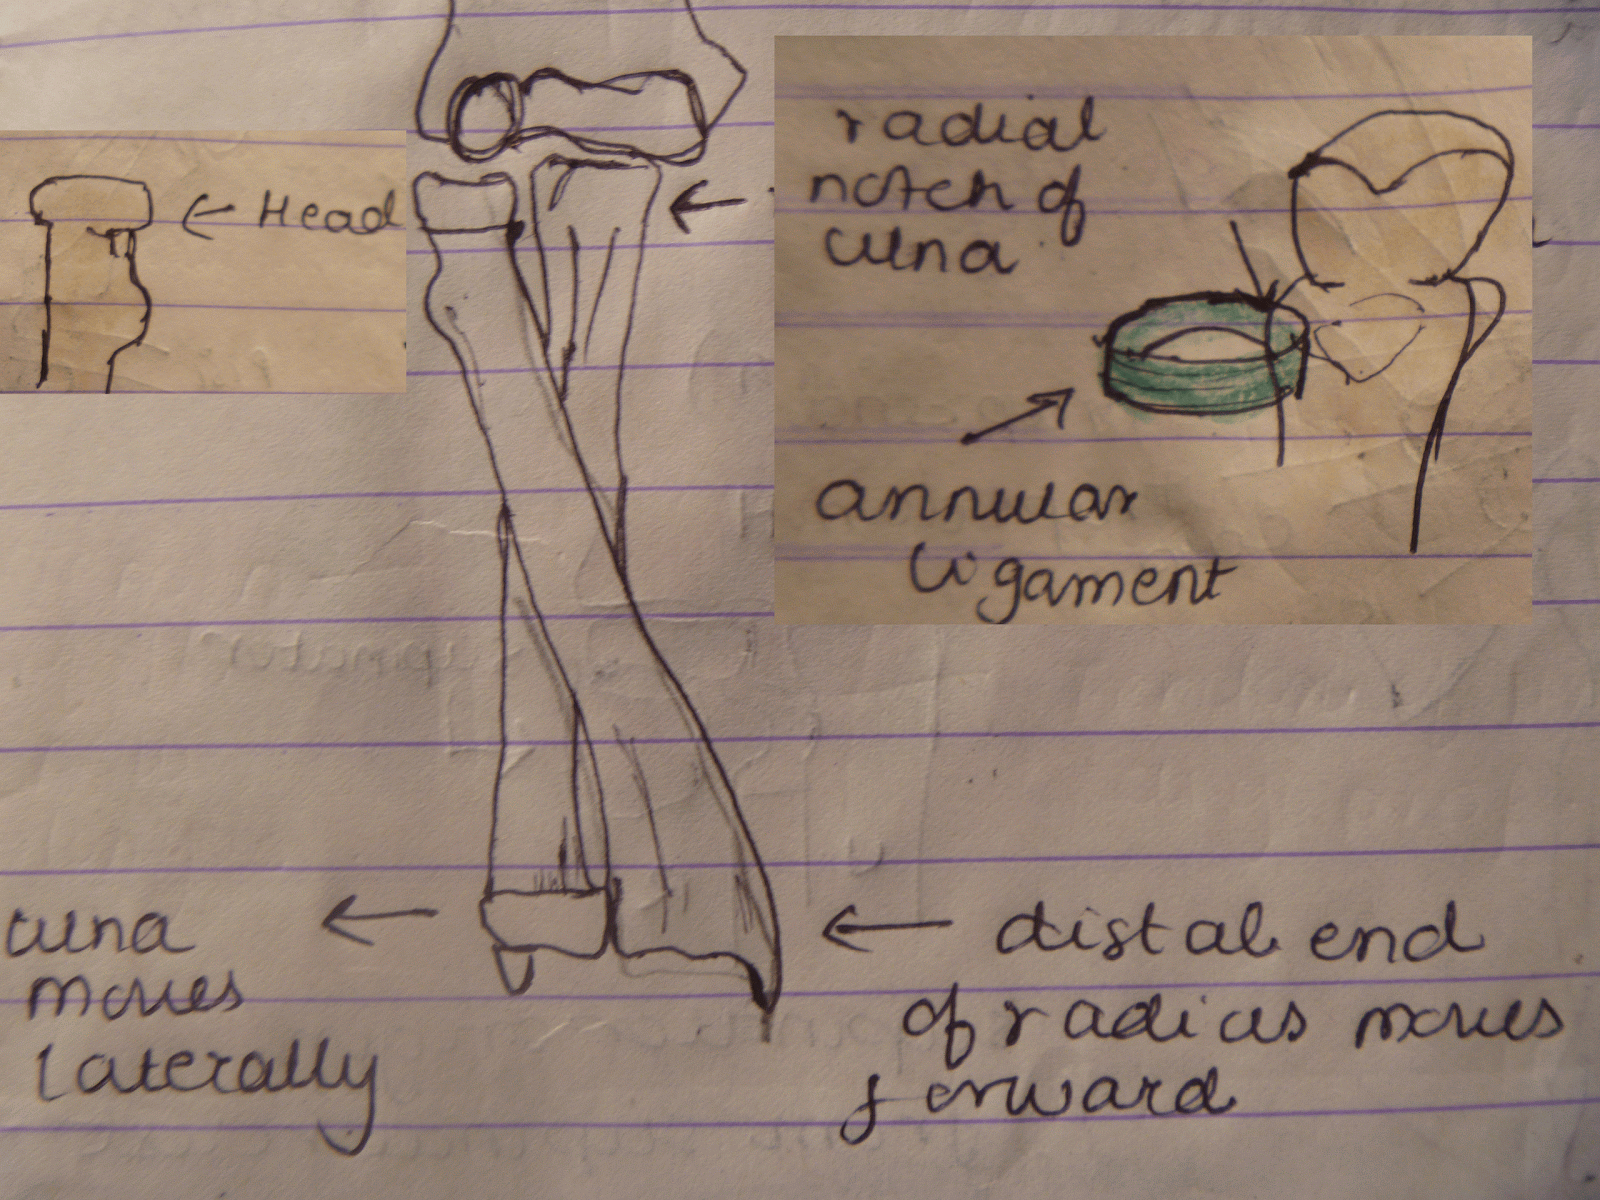 Head
radial
notch of
ulna
annular
ligament
ulna
moves
laterally
distal end
of radius moves
forward
supinator